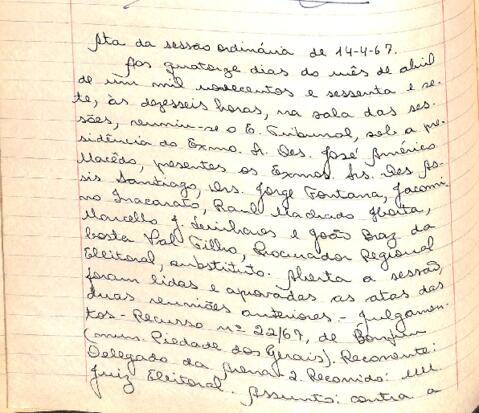 Ata da sessão ordinária de 14-4-67.
Aos quatorze dias do mês de abril
de um mil novecentos e sessenta e se-
te, às dezesseis horas, na sala das ses-
sões, reuniu-se o E. Tribunal, sob a pre-
sidência do Exmo. Sr. Des. José Américo
Macêdo, presentes os Exmos. Srs. Des. As-
sis Santiago, Drs. Jorge Fontana, Jacomi-
no Inacarato, Raul Machado Horta,
Marcello J. Linhares e João Braz da
Costa Val Filho, Procurador Regional
Eleitoral, substituto. Aberta a sessão,
foram lidas e aprovadas as atas das
duas reuniões anteriores. - Julgamen-
tos - Recurso nº 22/67, de Bonfim
(mun. Piedade dos Gerais). Recorrente:
Delegado da Arena 2. Recorrido: MM
Juiz Eleitoral. Assunto: contra a